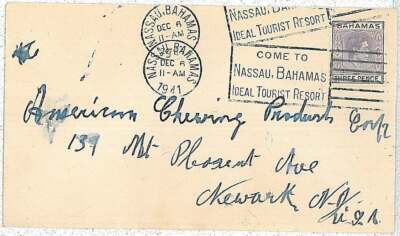 NASSAU, BAHAMAS
DEC 6
11-AM
NASSAU, BAHAMAS
DEC 6
11-AM
1941
NASSAU, BAHAMAS
IDEAL TOURIST RESORT
COME TO
NASSAU, BAHAMAS
IDEAL TOURIST RESORT
BAHAMAS
THREE PENCE
American Chewing Products Corp
139 Mt Pleasent Ave
Newark, N.J.
U.S.A.